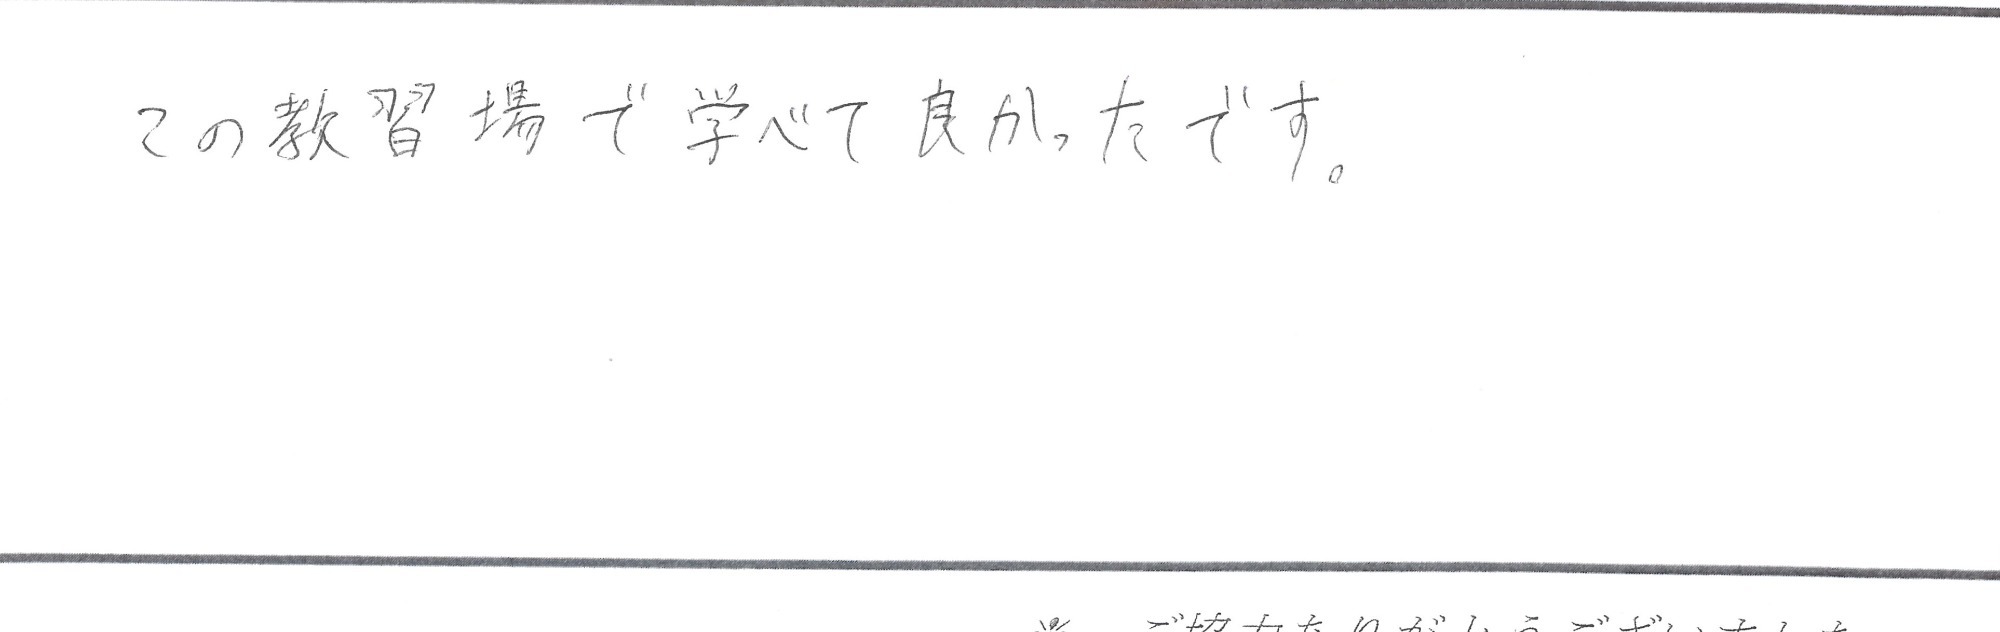 この教習場で学べて良かったです。
※ ご協力ありがとうございました